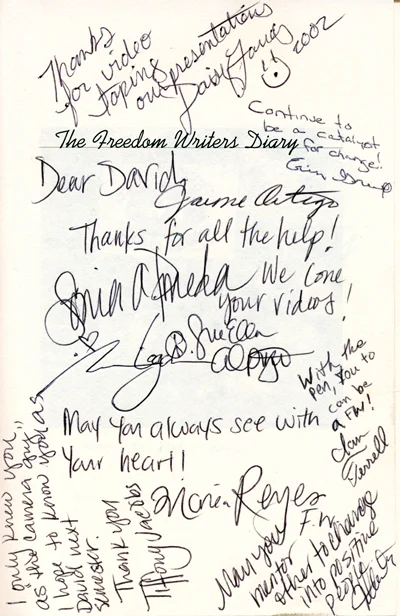 Thanks
for video
taping
our presentations
Daisy
2002
Continue to
be a catalyst
for change!
Erin
The Freedom Writers Diary
Dear David,
Jaime
Thanks for all the help!
Sonia
We love
your videos!
With the
pen, you to
can be
a FW!
Terrell
May you always see with
your heart!!
Maria Reyes
I only knew you
as the camera guy,
I hope to know you as
David next
semester.
Thank you
Tiffony Jacobs
May your F.W.
mentor
other to change
into positive
people